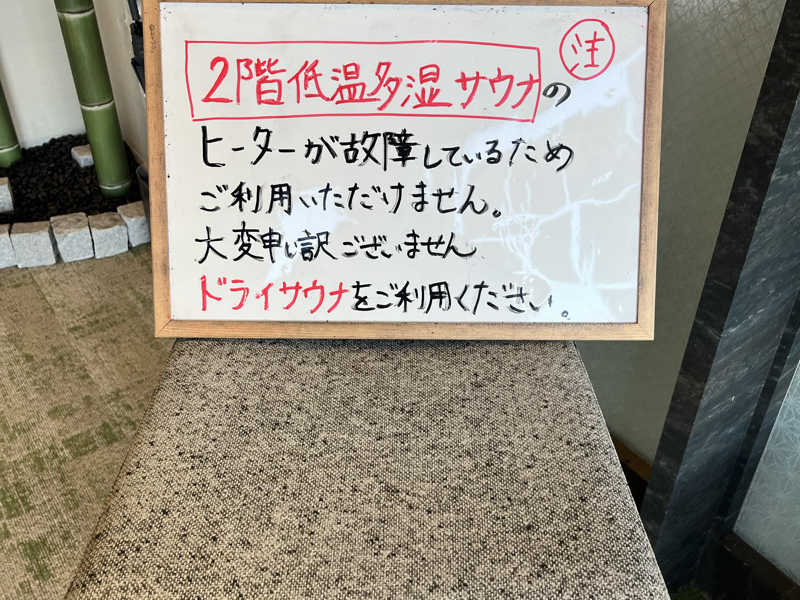 注
2階低温多湿サウナの
ヒーターが故障しているため
ご利用いただけません。
大変申し訳ございません
ドライサウナをご利用ください。